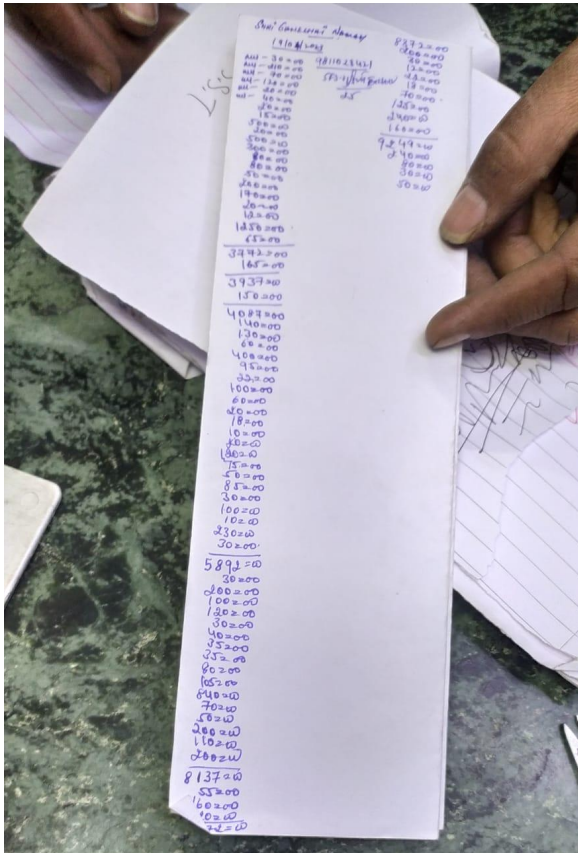 Shri Ganeshai Namay
30=00
210=00
70=00
120=00
20=00
40=00
20=00
15=00
500=00
20=00
500=00
300=00
80=00
50=00
200=00
170=00
20=00
12=00
1250=00
65=00
3772=00
165=00
3937=00
150=00
4087=00
140=00
130=00
60=00
400=00
95=00
22=00
100=00
60=00
20=00
18=00
10=00
180=00
75=00
50=00
85=00
30=00
100=00
10=00
230=00
30=00
5892=00
30=00
200=00
100=00
120=00
30=00
40=00
35=00
35=00
80=00
105=00
840=00
70=00
50=00
200=00
110=00
200=00
8137=00
55=00
8372=00
200=00
12=00
22=00
18=00
70=00
125=00
240=00
160=00
9249=00
240=00
80=00
30=00
50=00